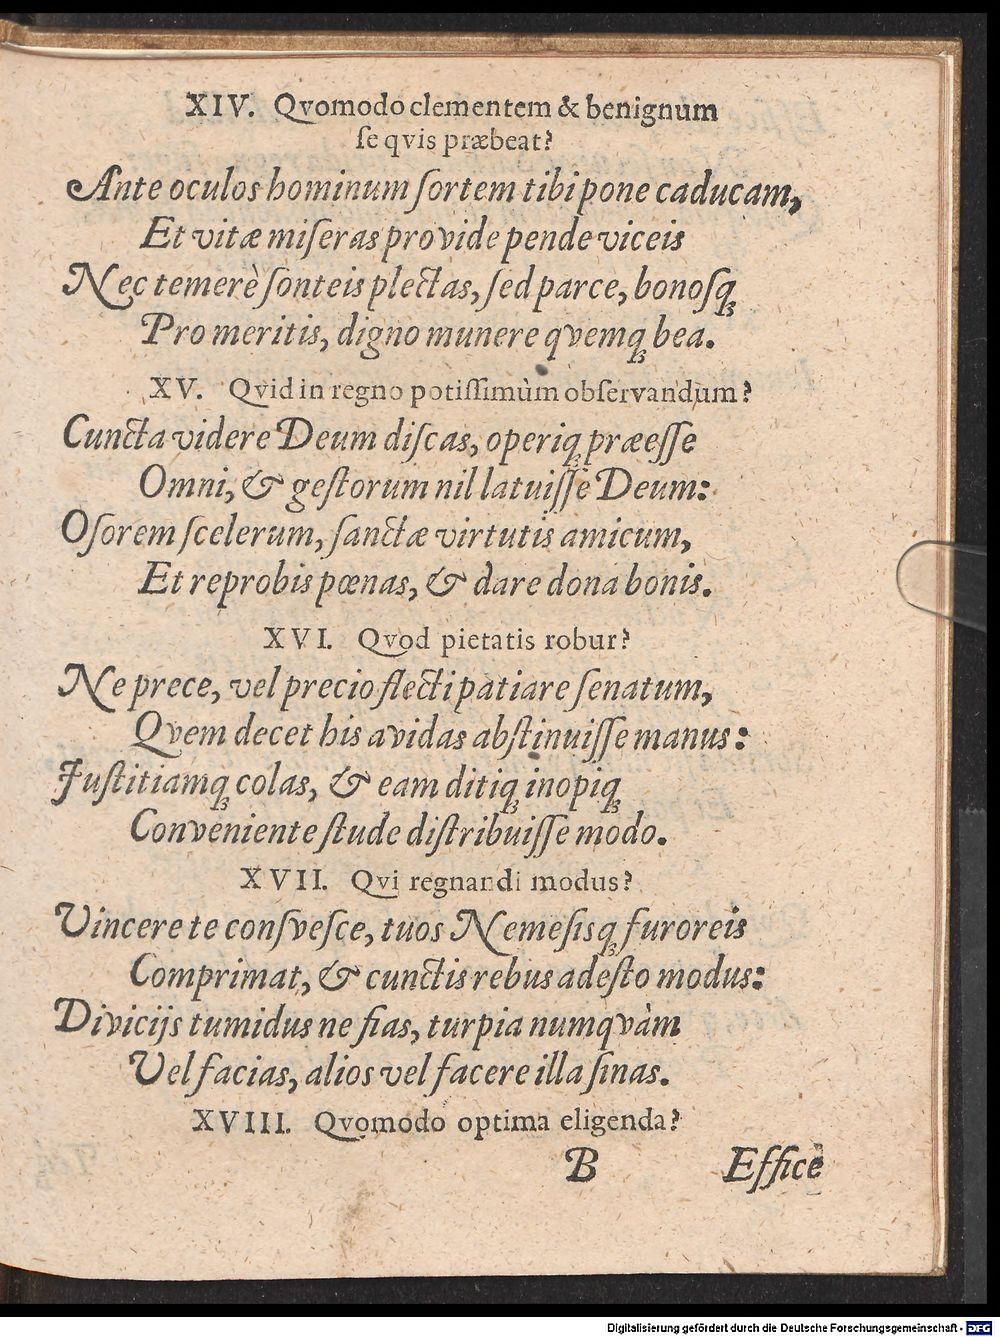 XIV. Qvomodo clementem & benignum
ſe qvis præbeat?
Ante oculos hominum ſortem tibi pone caducam,
Et vitæ miſeras provide pende viceis
Nec temerè ſonteis plectas, ſed parce, bonoſqꝫ
Pro meritis, digno munere qvemqꝫ bea.
XV. Qvid in regno potiſſimùm obſervandum?
Cuncta videre Deum diſcas, operiqꝫ præeſſe
Omni, & geſtorum nil latuiſſe Deum:
Oſorem ſcelerum, ſanctæ virtutis amicum,
Et reprobis pœnas, & dare dona bonis.
XVI. Qvod pietatis robur?
Ne prece, vel precio flecti patiare ſenatum,
Qvem decet his avidas abſtinuiſſe manus:
Juſtitiamqꝫ colas, & eam ditiqꝫ inopiqꝫ
Conveniente ſtude diſtribuiſſe modo.
XVII. Qvi regnandi modus?
Vincere te conſveſce, tuos Nemeſisqꝫ furoreis
Comprimat, & cunctis rebus adeſto modus:
Divicijs tumidus ne fias, turpia numqvàm
Vel facias, alios vel facere illa ſinas.
XVIII. Qvomodo optima eligenda?
B Effice
Digitalisierung gefördert durch die Deutsche Forschungsgemeinschaft - DFG